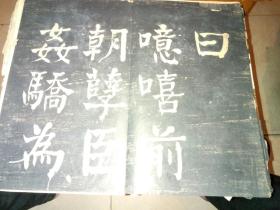 曰
噫嘻前
朝孽臣
姦驕為